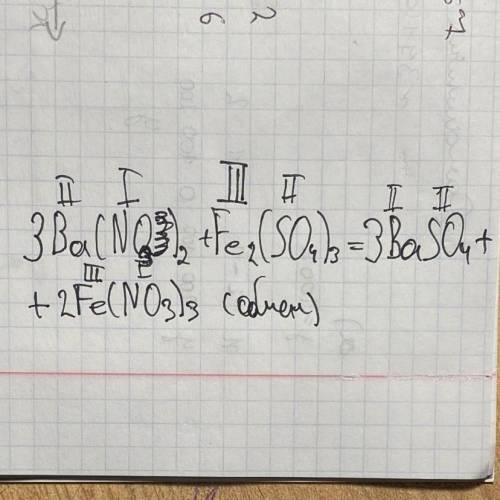 II I III II II II
3Ba(NO3)2 + Fe2(SO4)3 = 3BaSO4 +
III I
+ 2Fe(NO3)3 (обмен)